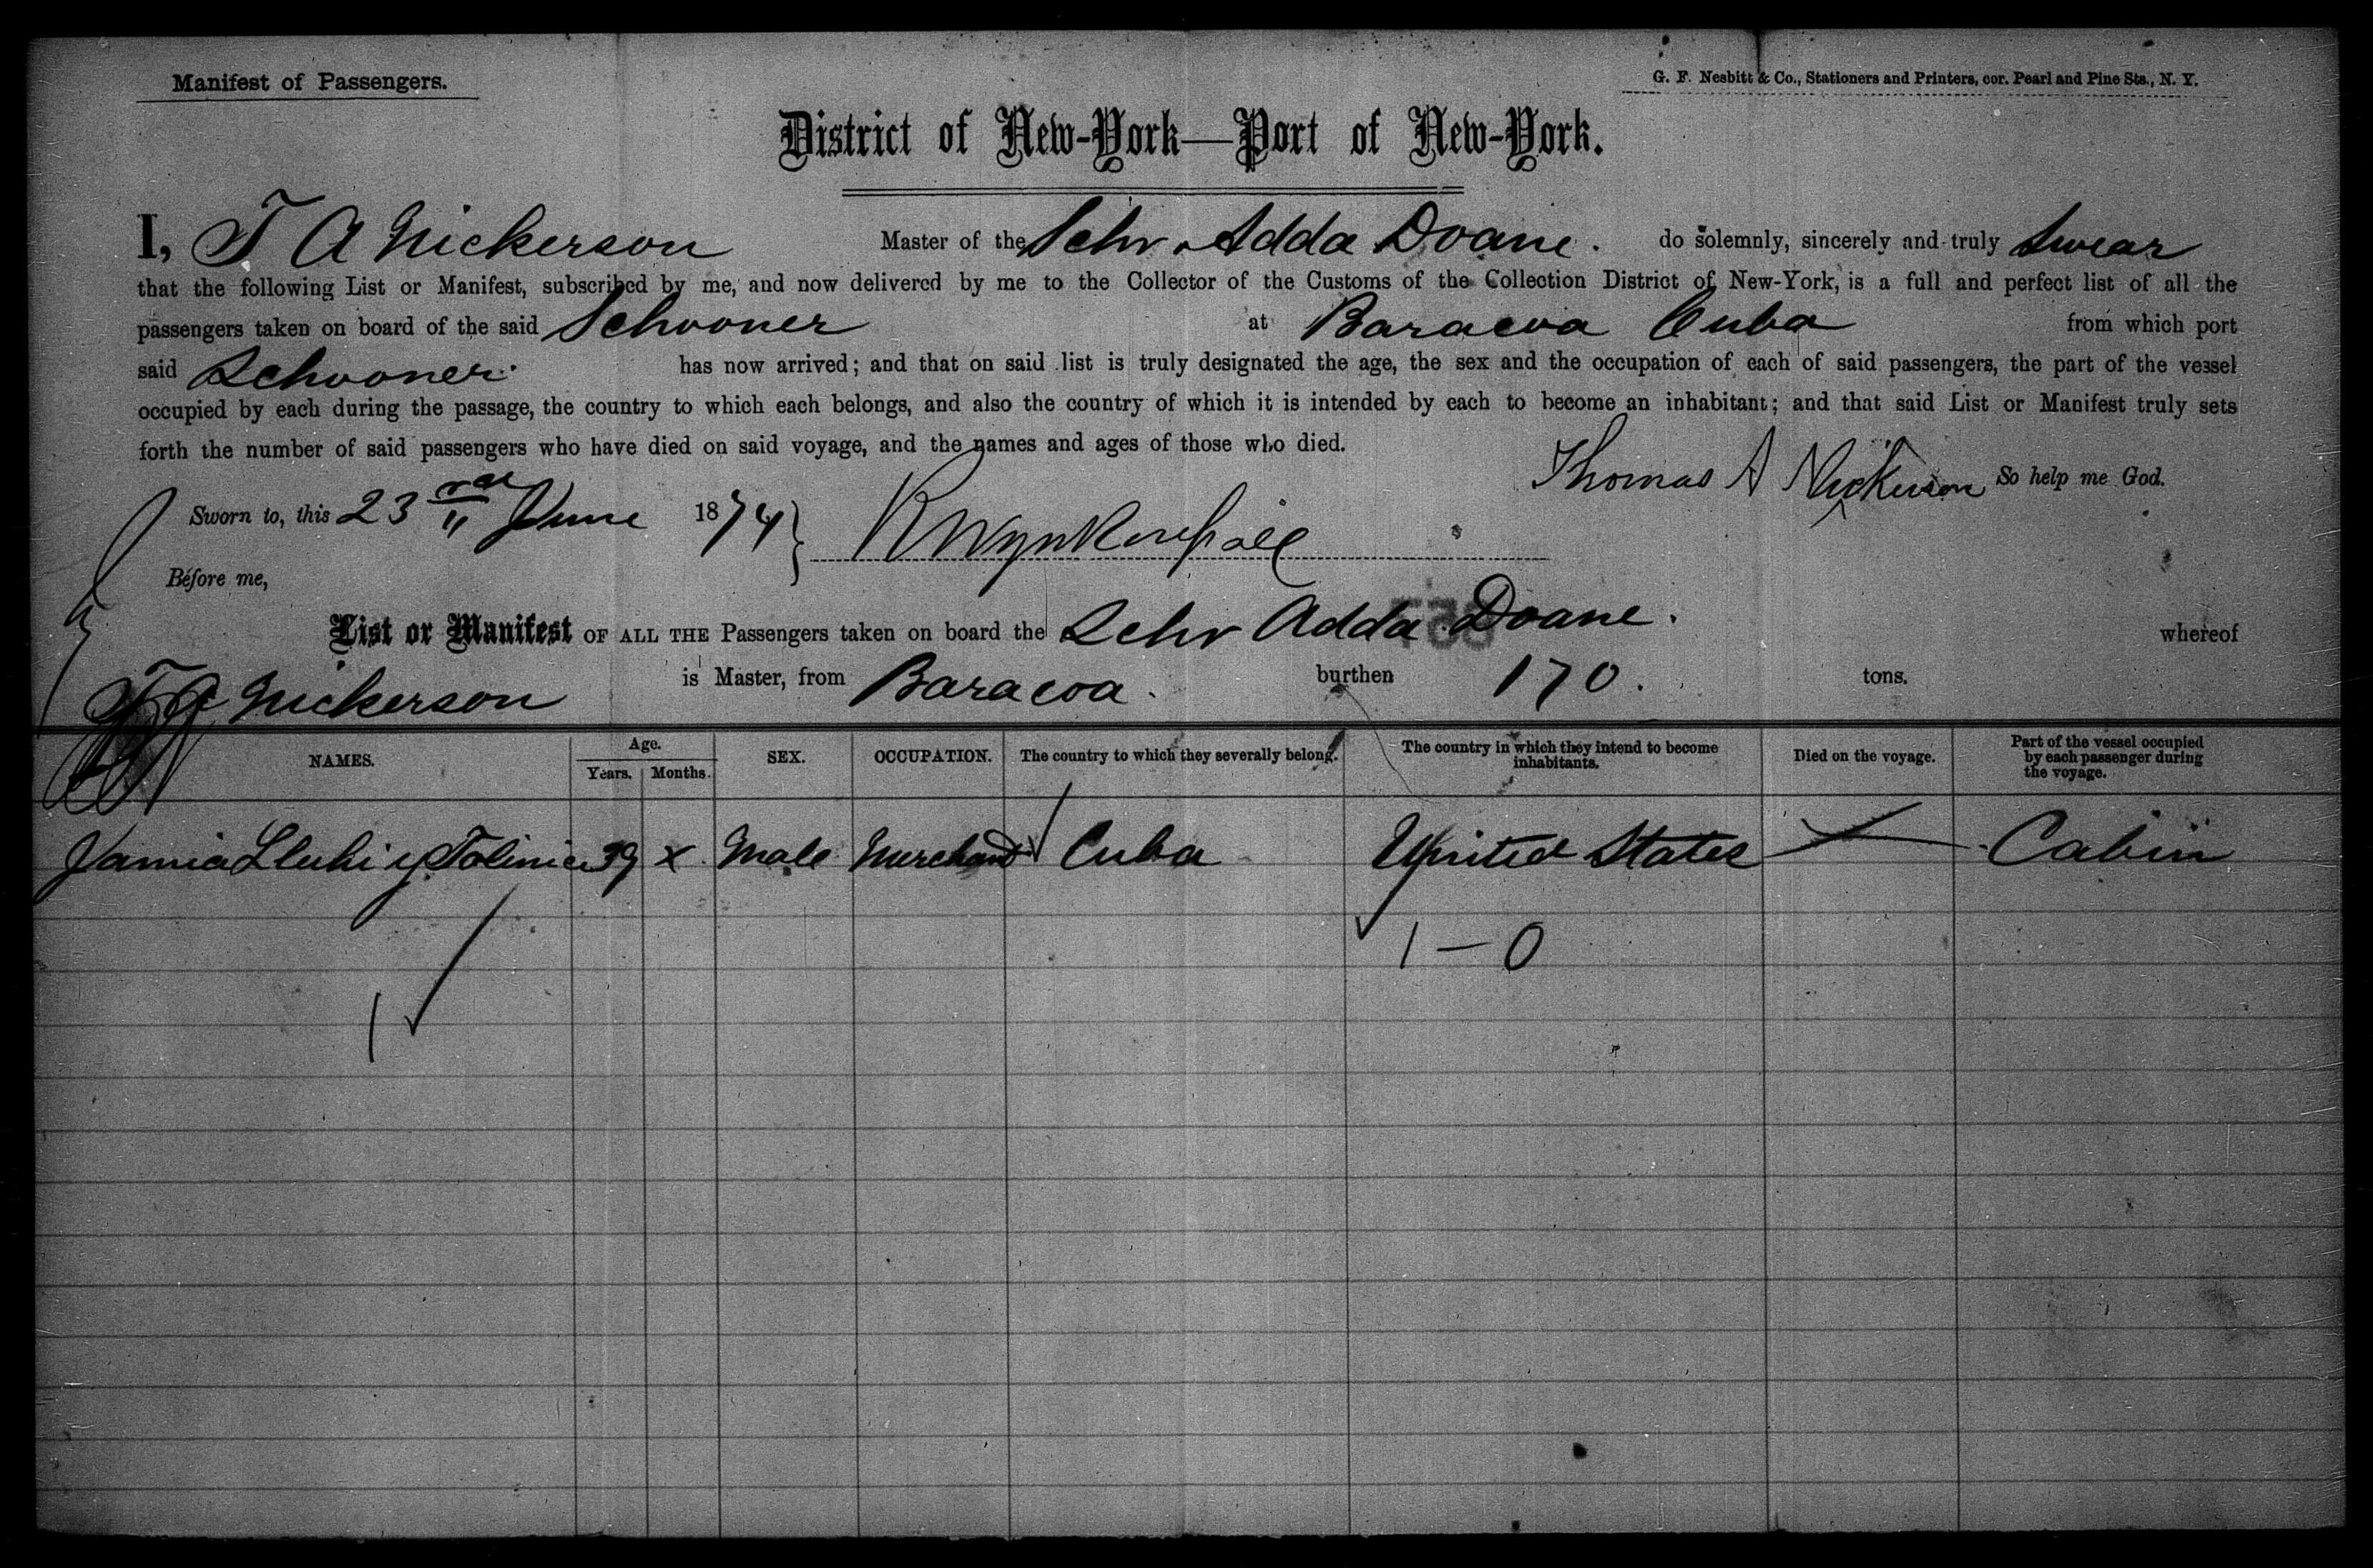 Manifest of Passengers.
G. F. Nesbitt & Co., Stationers and Printers, cor. Pearl and Pine Sts., N. Y.
District of New-York—Port of New-York.
I, T A Nickerson Master of the Schr Adda Doane. do solemnly, sincerely and truly swear
that the following List or Manifest, subscribed by me, and now delivered by me to the Collector of the Customs of the Collection District of New-York, is a full and perfect list of all the
passengers taken on board of the said Schooner at Baracoa Cuba from which port
said Schooner has now arrived; and that on said list is truly designated the age, the sex and the occupation of each of said passengers, the part of the vessel
occupied by each during the passage, the country to which each belongs, and also the country of which it is intended by each to become an inhabitant; and that said List or Manifest truly sets
forth the number of said passengers who have died on said voyage, and the names and ages of those who died.
Thomas A Nickerson So help me God.
Sworn to, this 23rd June 1874
Before me,
List or Manifest OF ALL THE Passengers taken on board the Schr Adda Doane. whereof
T A Nickerson is Master, from Baracoa. burthen 170. tons.
NAMES. Age. Years. Months. SEX. OCCUPATION. The country to which they severally belong. The country in which they intend to become inhabitants. Died on the voyage. Part of the vessel occupied by each passenger during the voyage.
y 39 x Male Merchant Cuba United States Cabin
1 — 0
1